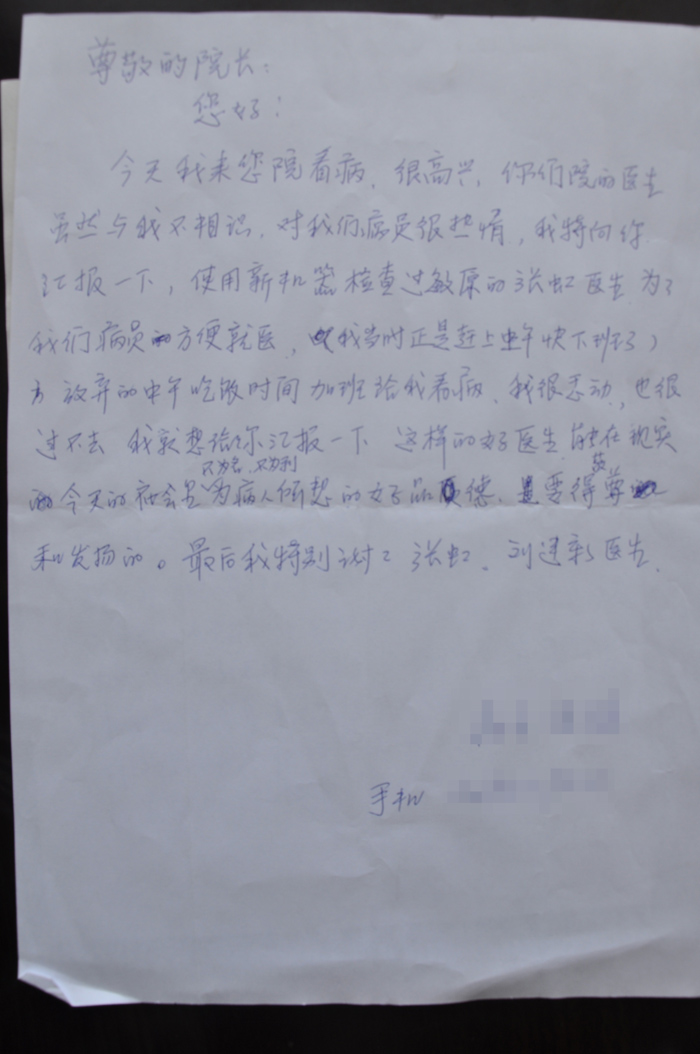 尊敬的院长:
您好:
今天我来您院看病、很高兴、你们院的医生
虽然与我不相识、对我们病员很热情,我将向你
汇报一下,使用新机器检查过敏原的张虹医生为了
我们病员的方便就医,(我当时正是赶上中午快下班了)
放弃的中午吃饭时间加班给我看病、我很感动、也很
过不去 我就想给你汇报一下 这样的好医生、能在现实
不为名、不为利
今天的社会是为病人所想的好品德、是要得尊敬
和发扬的。最后我特别谢谢张虹、刘进新医生、
手机